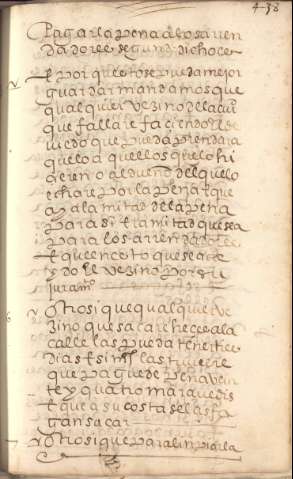 438
Pagar la pena a los arren
dadores segund dicho es
E porque esto se pueda mejor
guardar mandamos que
qualquier vezino de la
que fallare faziendo el
que pueda prendar a
aquel o aquellos que lo hi
zieren o al dueño del que lo
echare por la pena E que
aya la mitad de la pena
para si E la mitad que sea
para los arrendadores
E que en esto que sea crey
do El vezino por su
juramº
Otrosi que qualquier ve
zino que sacare a la
calle las pueda tener tres
dias E si mas las tuviere
que pague de pena vein
te y quatro maravedis
E que a su costa se las fa
gan sacar
Otrosi que para linpiar la